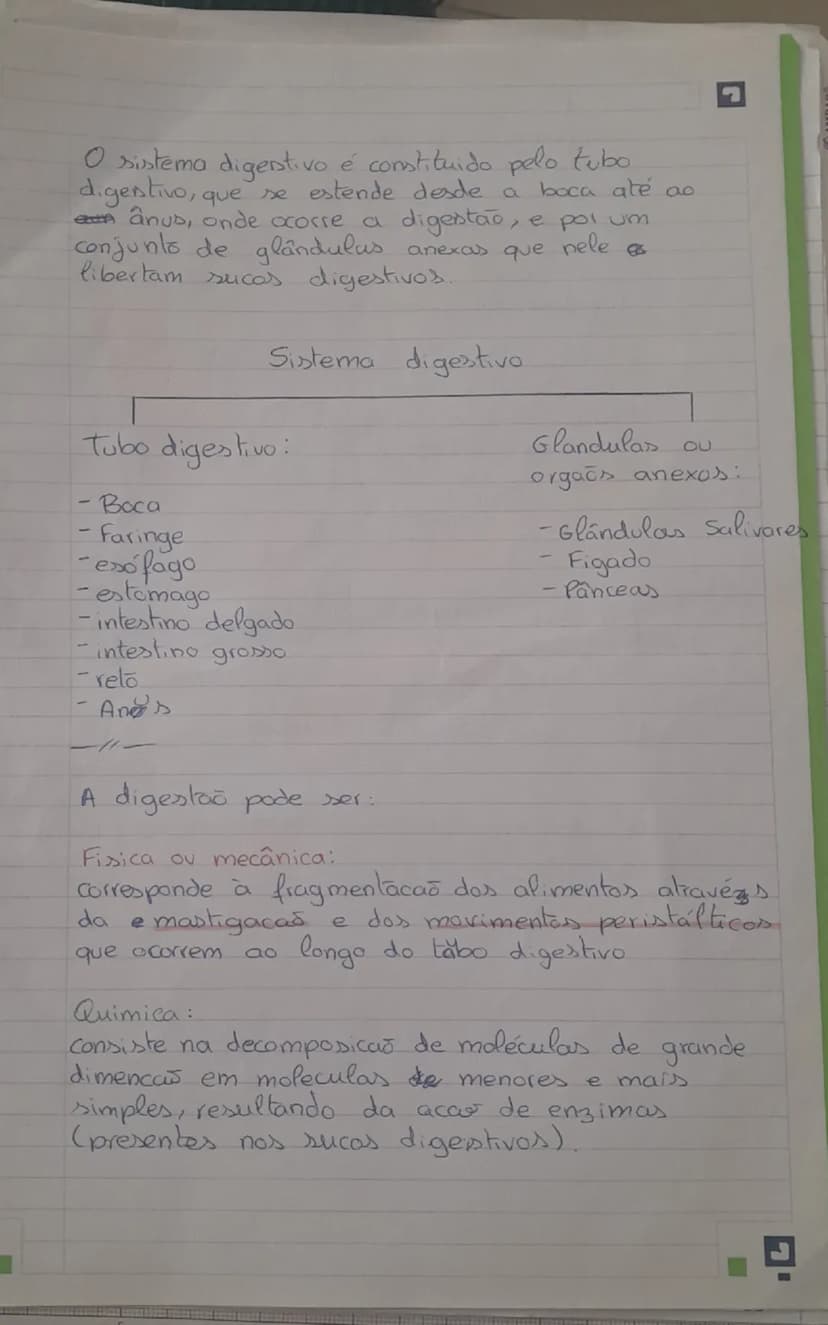 O sistema digestivo é constituido pelo tubo
digestivo, que se estende desde a boca até ao
ânus, onde ocorre a digestão, e por um
conjunto de glândulas anexas que nele
libertam sucos digestivos.
Sistema digestivo
Tubo digestivo:
- Boca
- Faringe
- esófago
- estomago
- intestino delgado
- intestino grosso
- reto
- Anus
Glandulas ou
orgaõs anexos:
- Glândulas Salivares
- Figado
- Pânceas
A digestaõ pode ser:
Fisica ou mecânica:
corresponde à fragmentacaõ dos alimentos através
da mastigacaõ e dos movimentos peristálticos
que ocorrem ao longo do tubo digestivo
Quimica:
consiste na decomposicaõ de moléculas de grande
dimencaõ em moleculas menores e mais
simples, resultando da acaõ de enzimas
(presentes nos sucos digestivos).